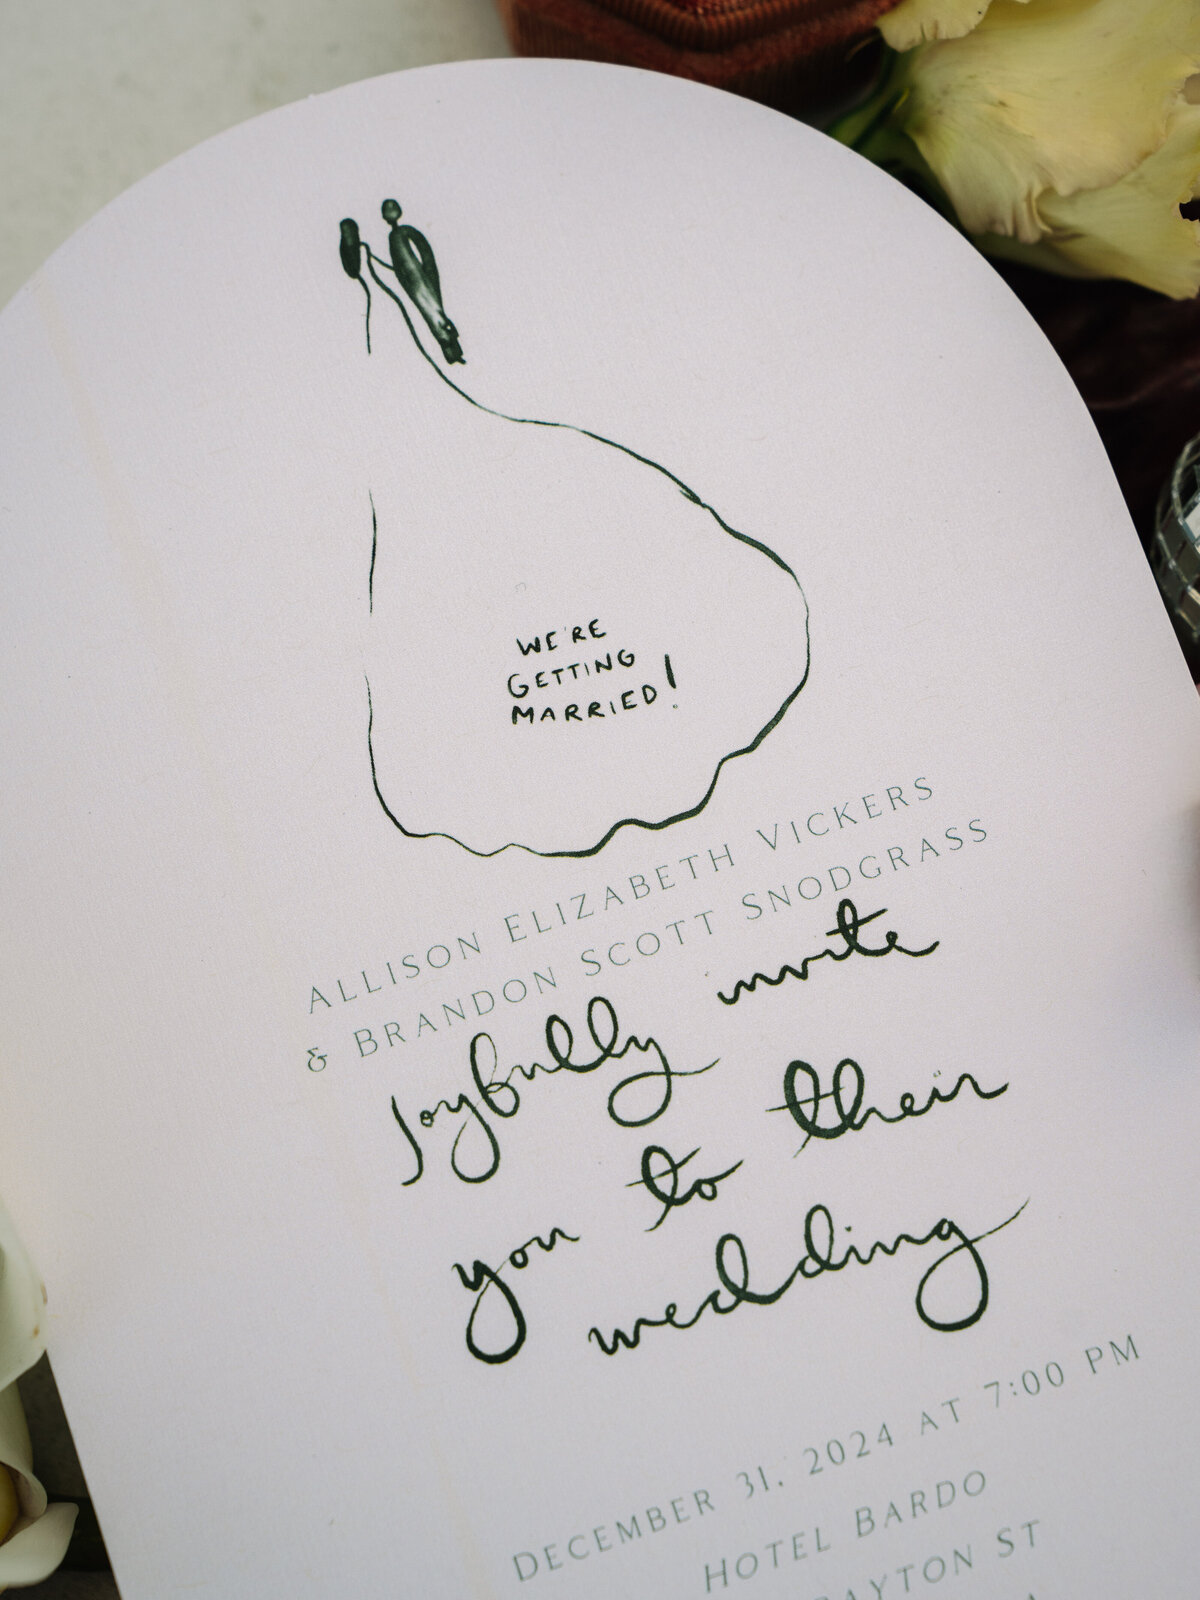 WE'RE
GETTING
MARRIED!
ALLISON ELIZABETH VICKERS
& BRANDON SCOTT SNODGRASS
joyfully invite
you to their
wedding
DECEMBER 31, 2024 AT 7:00 PM
HOTEL BARDO
ST